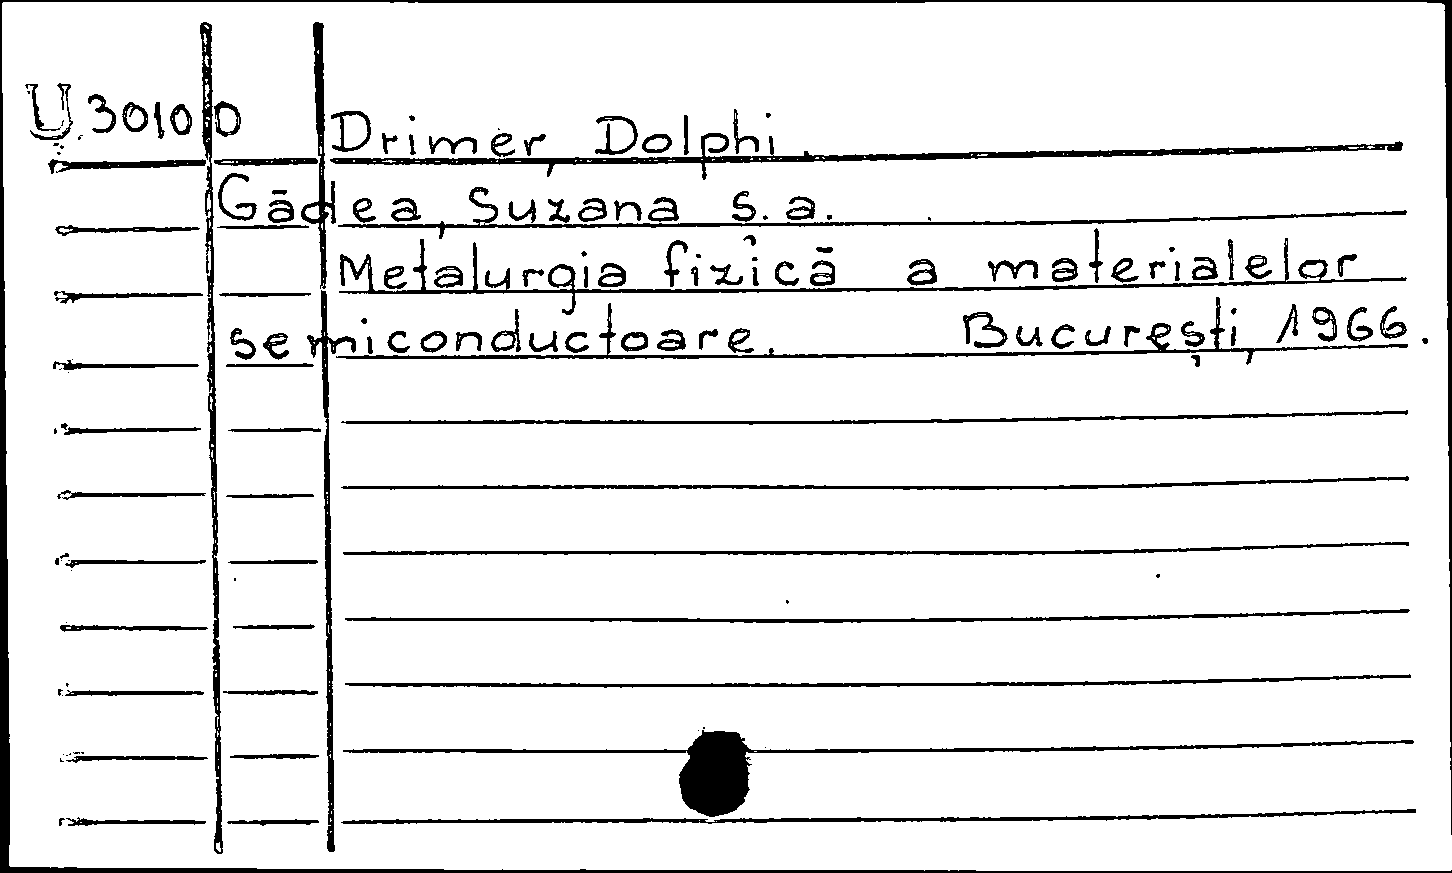 U.30100
Drimer, Dolphi.
Gādea, Suzana s.a.
Metalurgia fizică a materialelor
semiconductoare. București, 1966.